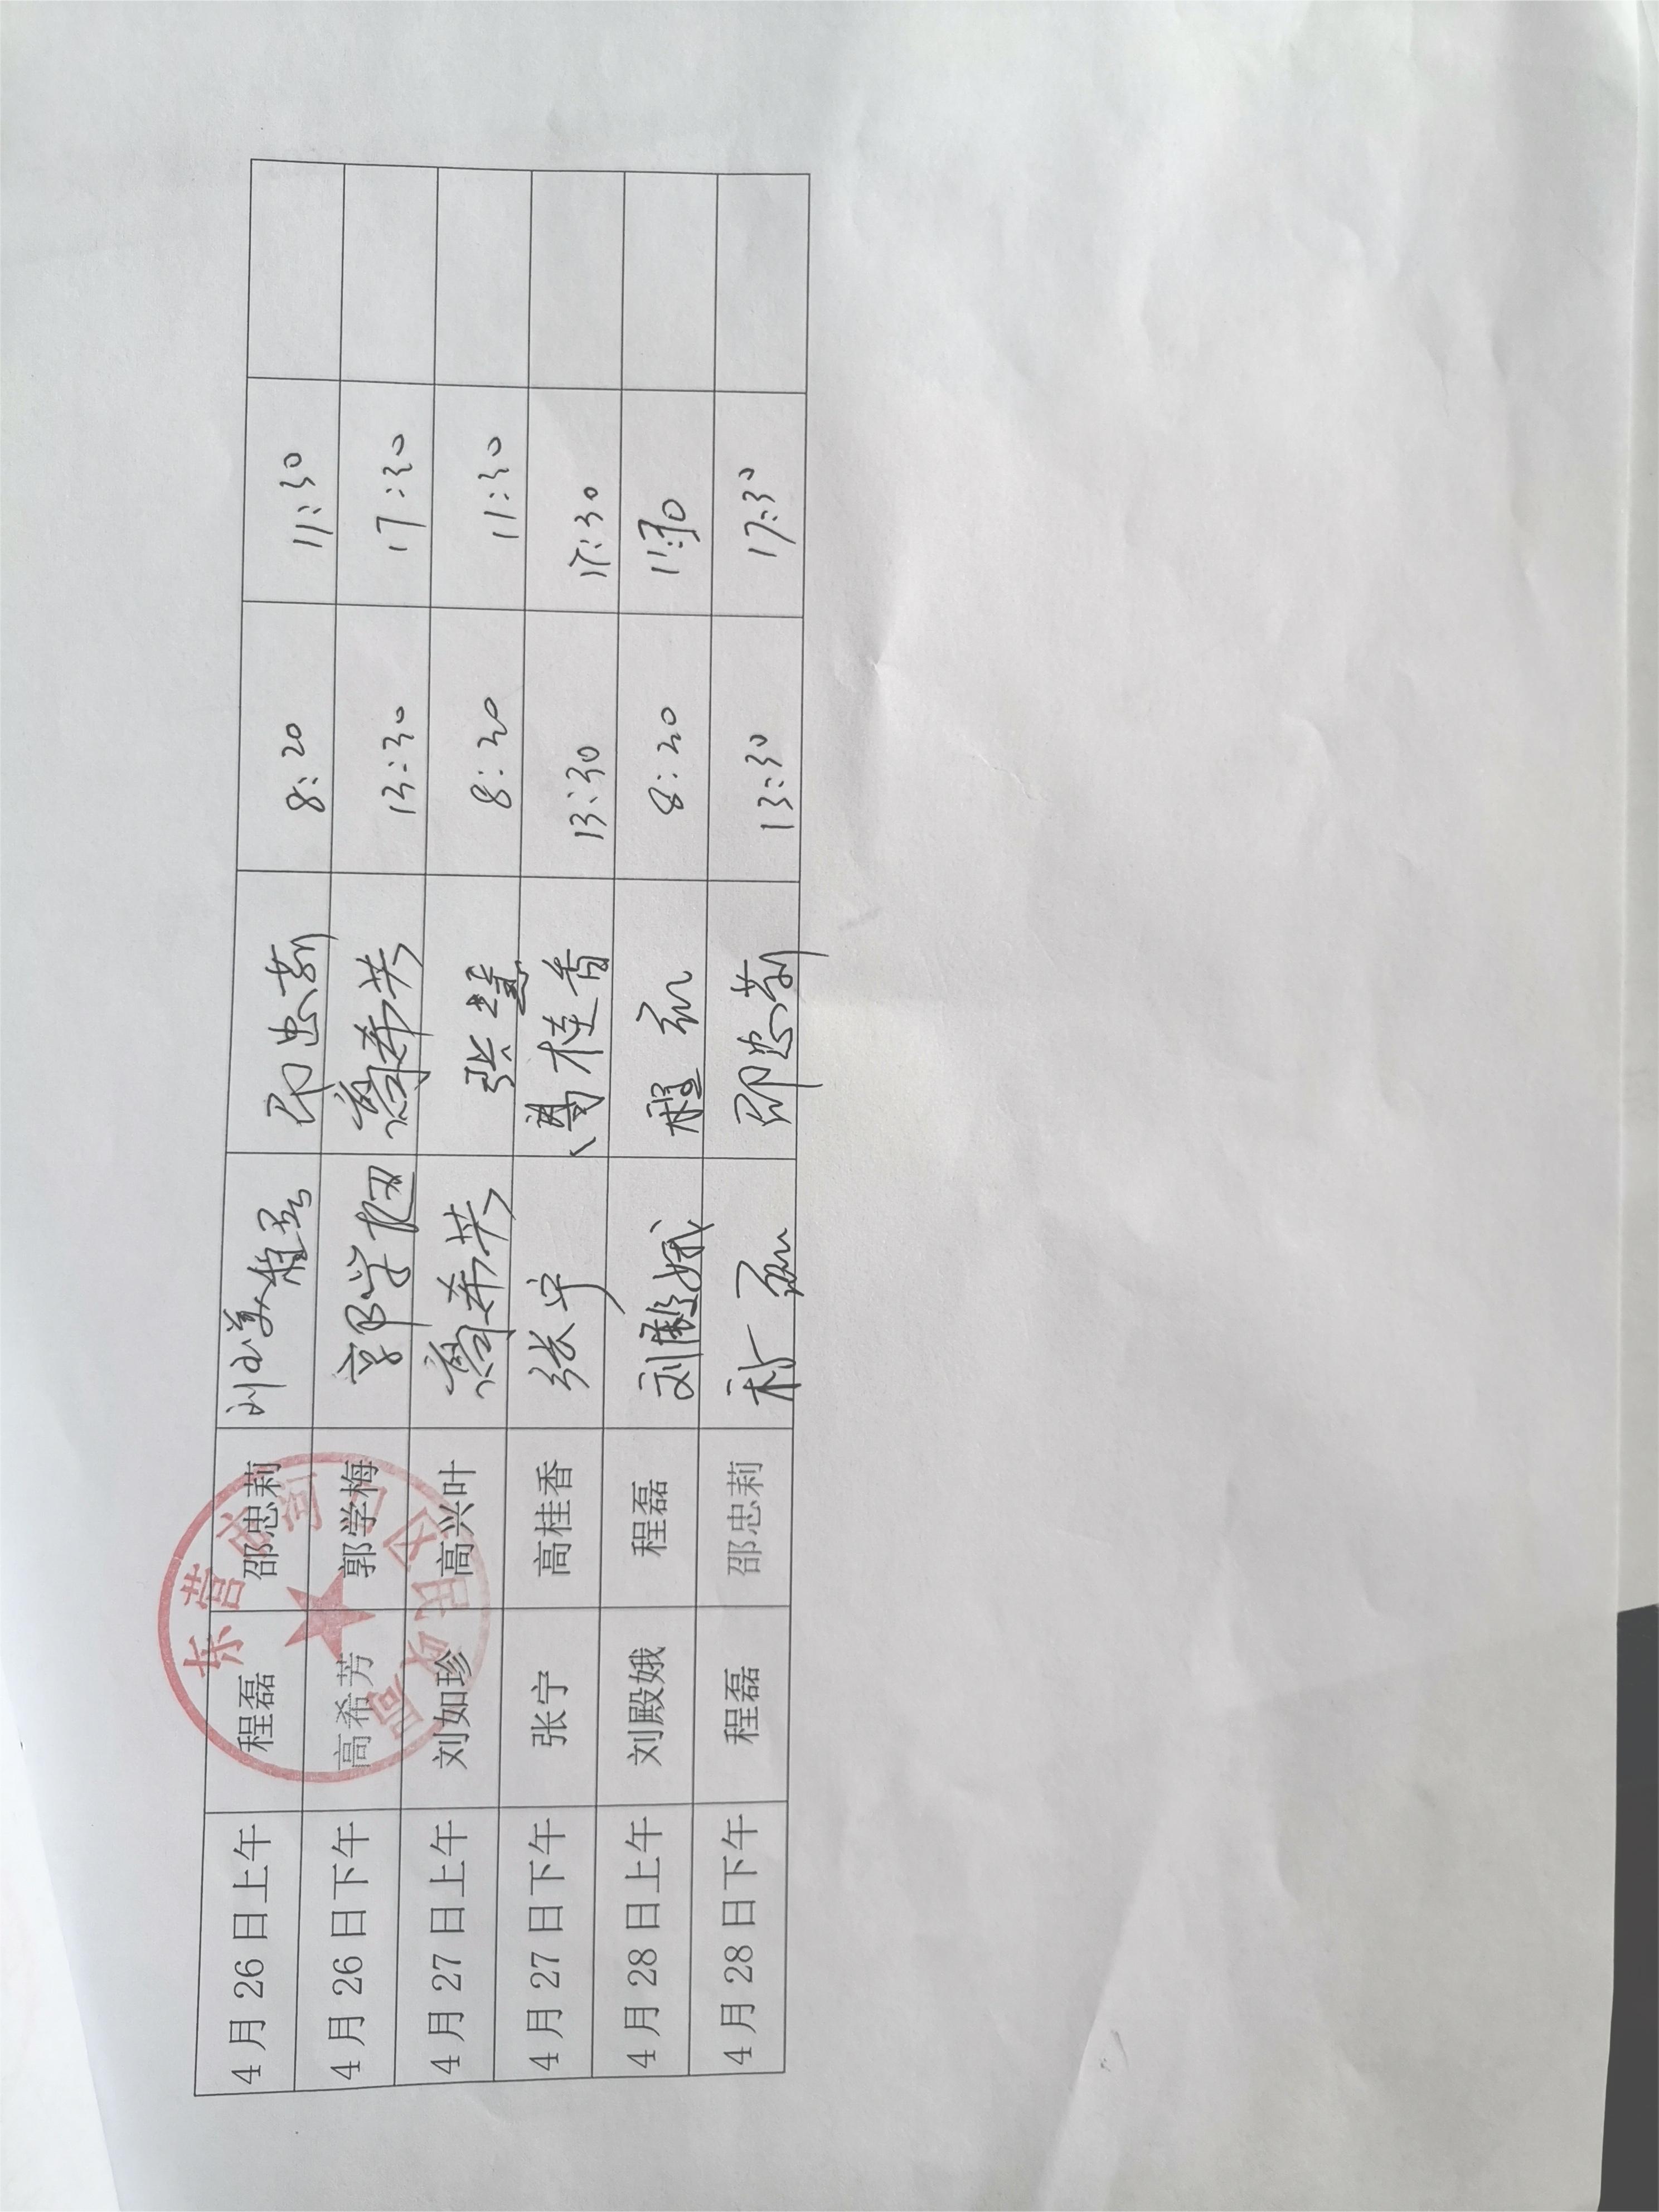 4月26日上午 程磊 邵忠莉 邵忠莉 8:20 11:30
4月26日下午 高希芳 郭学梅 郭学梅 高希芳 13:30 17:30
4月27日上午 刘如珍 高兴叶 高希芳 8:20 11:30
4月27日下午 张宁 高桂香 张宁 高桂香 13:30 17:30
4月28日上午 刘殿娥 程磊 刘殿娥 程磊 8:20 11:30
4月28日下午 程磊 邵忠莉 程磊 邵忠莉 13:30 17:30
东营